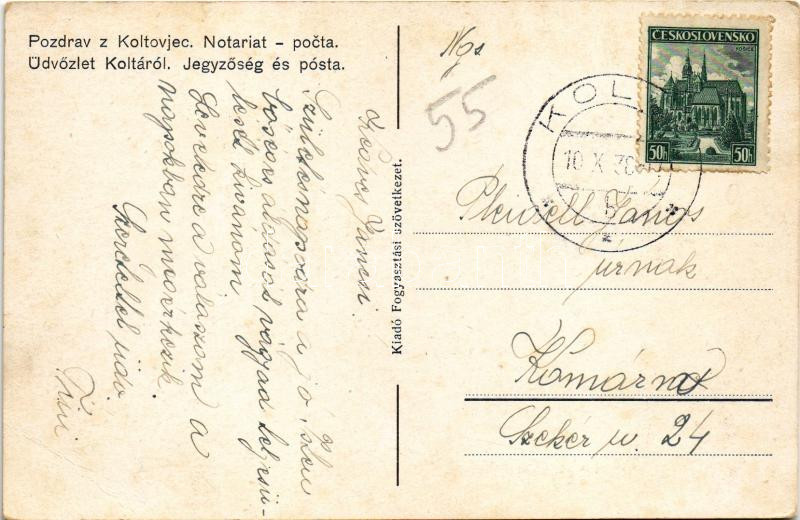 Pozdrav z Koltovjec. Notariat – počta.
Üdvőzlet Koltáról. Jegyzőség és pósta.
Kedves Jancsi!
Születésnapodra a jó Isten
bőséges áldását vágyad teljesü-
lését kivánom.
Leveledre a válaszom a
napokban
Szeretettel üdv.
Kiadó Fogyasztási szövetkezet.
Ngs
55
ČESKOSLOVENSKO
KOŠICE
50h 50h
KOL
10 X 38
Pleidell János
úrnak
Komárno
Szekér u. 24